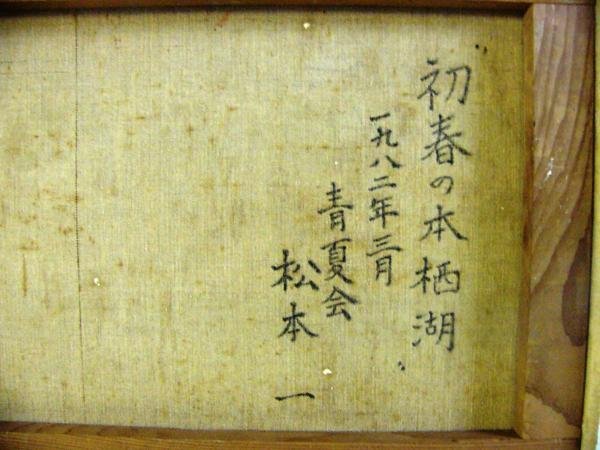 初春の本栖湖
一九八二年三月
青夏会
松本一